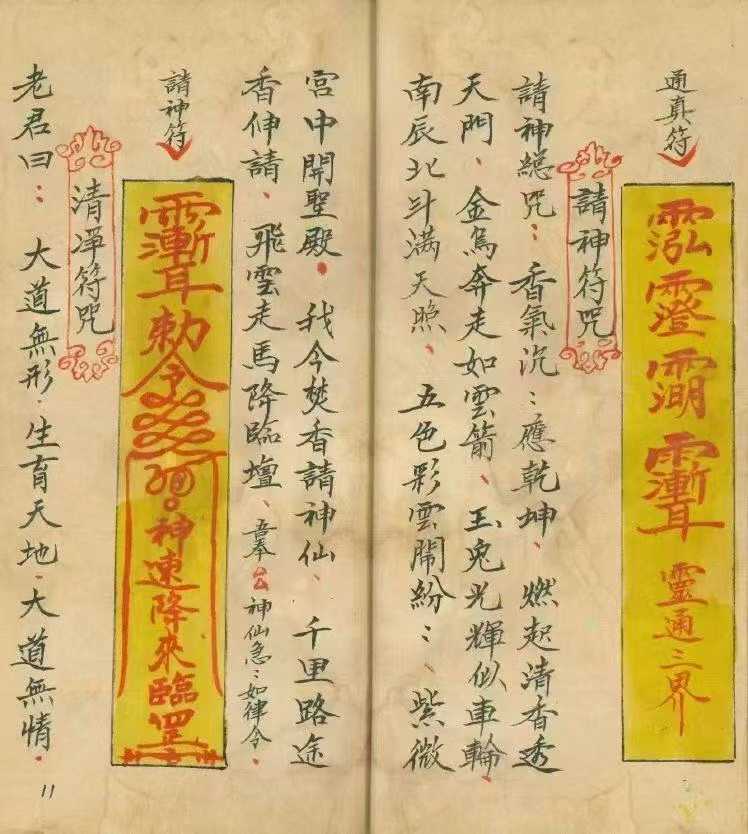 通真符
靈通三界
請神符咒
請神緫咒：香氣沉：應乾坤、燃起清香透
天門、金烏奔走如雲箭、玉兔光輝似車輪、
南辰北斗滿天照、五色彩雲鬧紛：、紫微
宫中開聖殿。我今焚香請神仙、千里路途
香伸請、飛雲走馬降臨壇、奉神仙急：如律令、
請神符
勅令神速降來臨罡
清淨符咒
老君曰：大道無形、生育天地、大道無情、
11